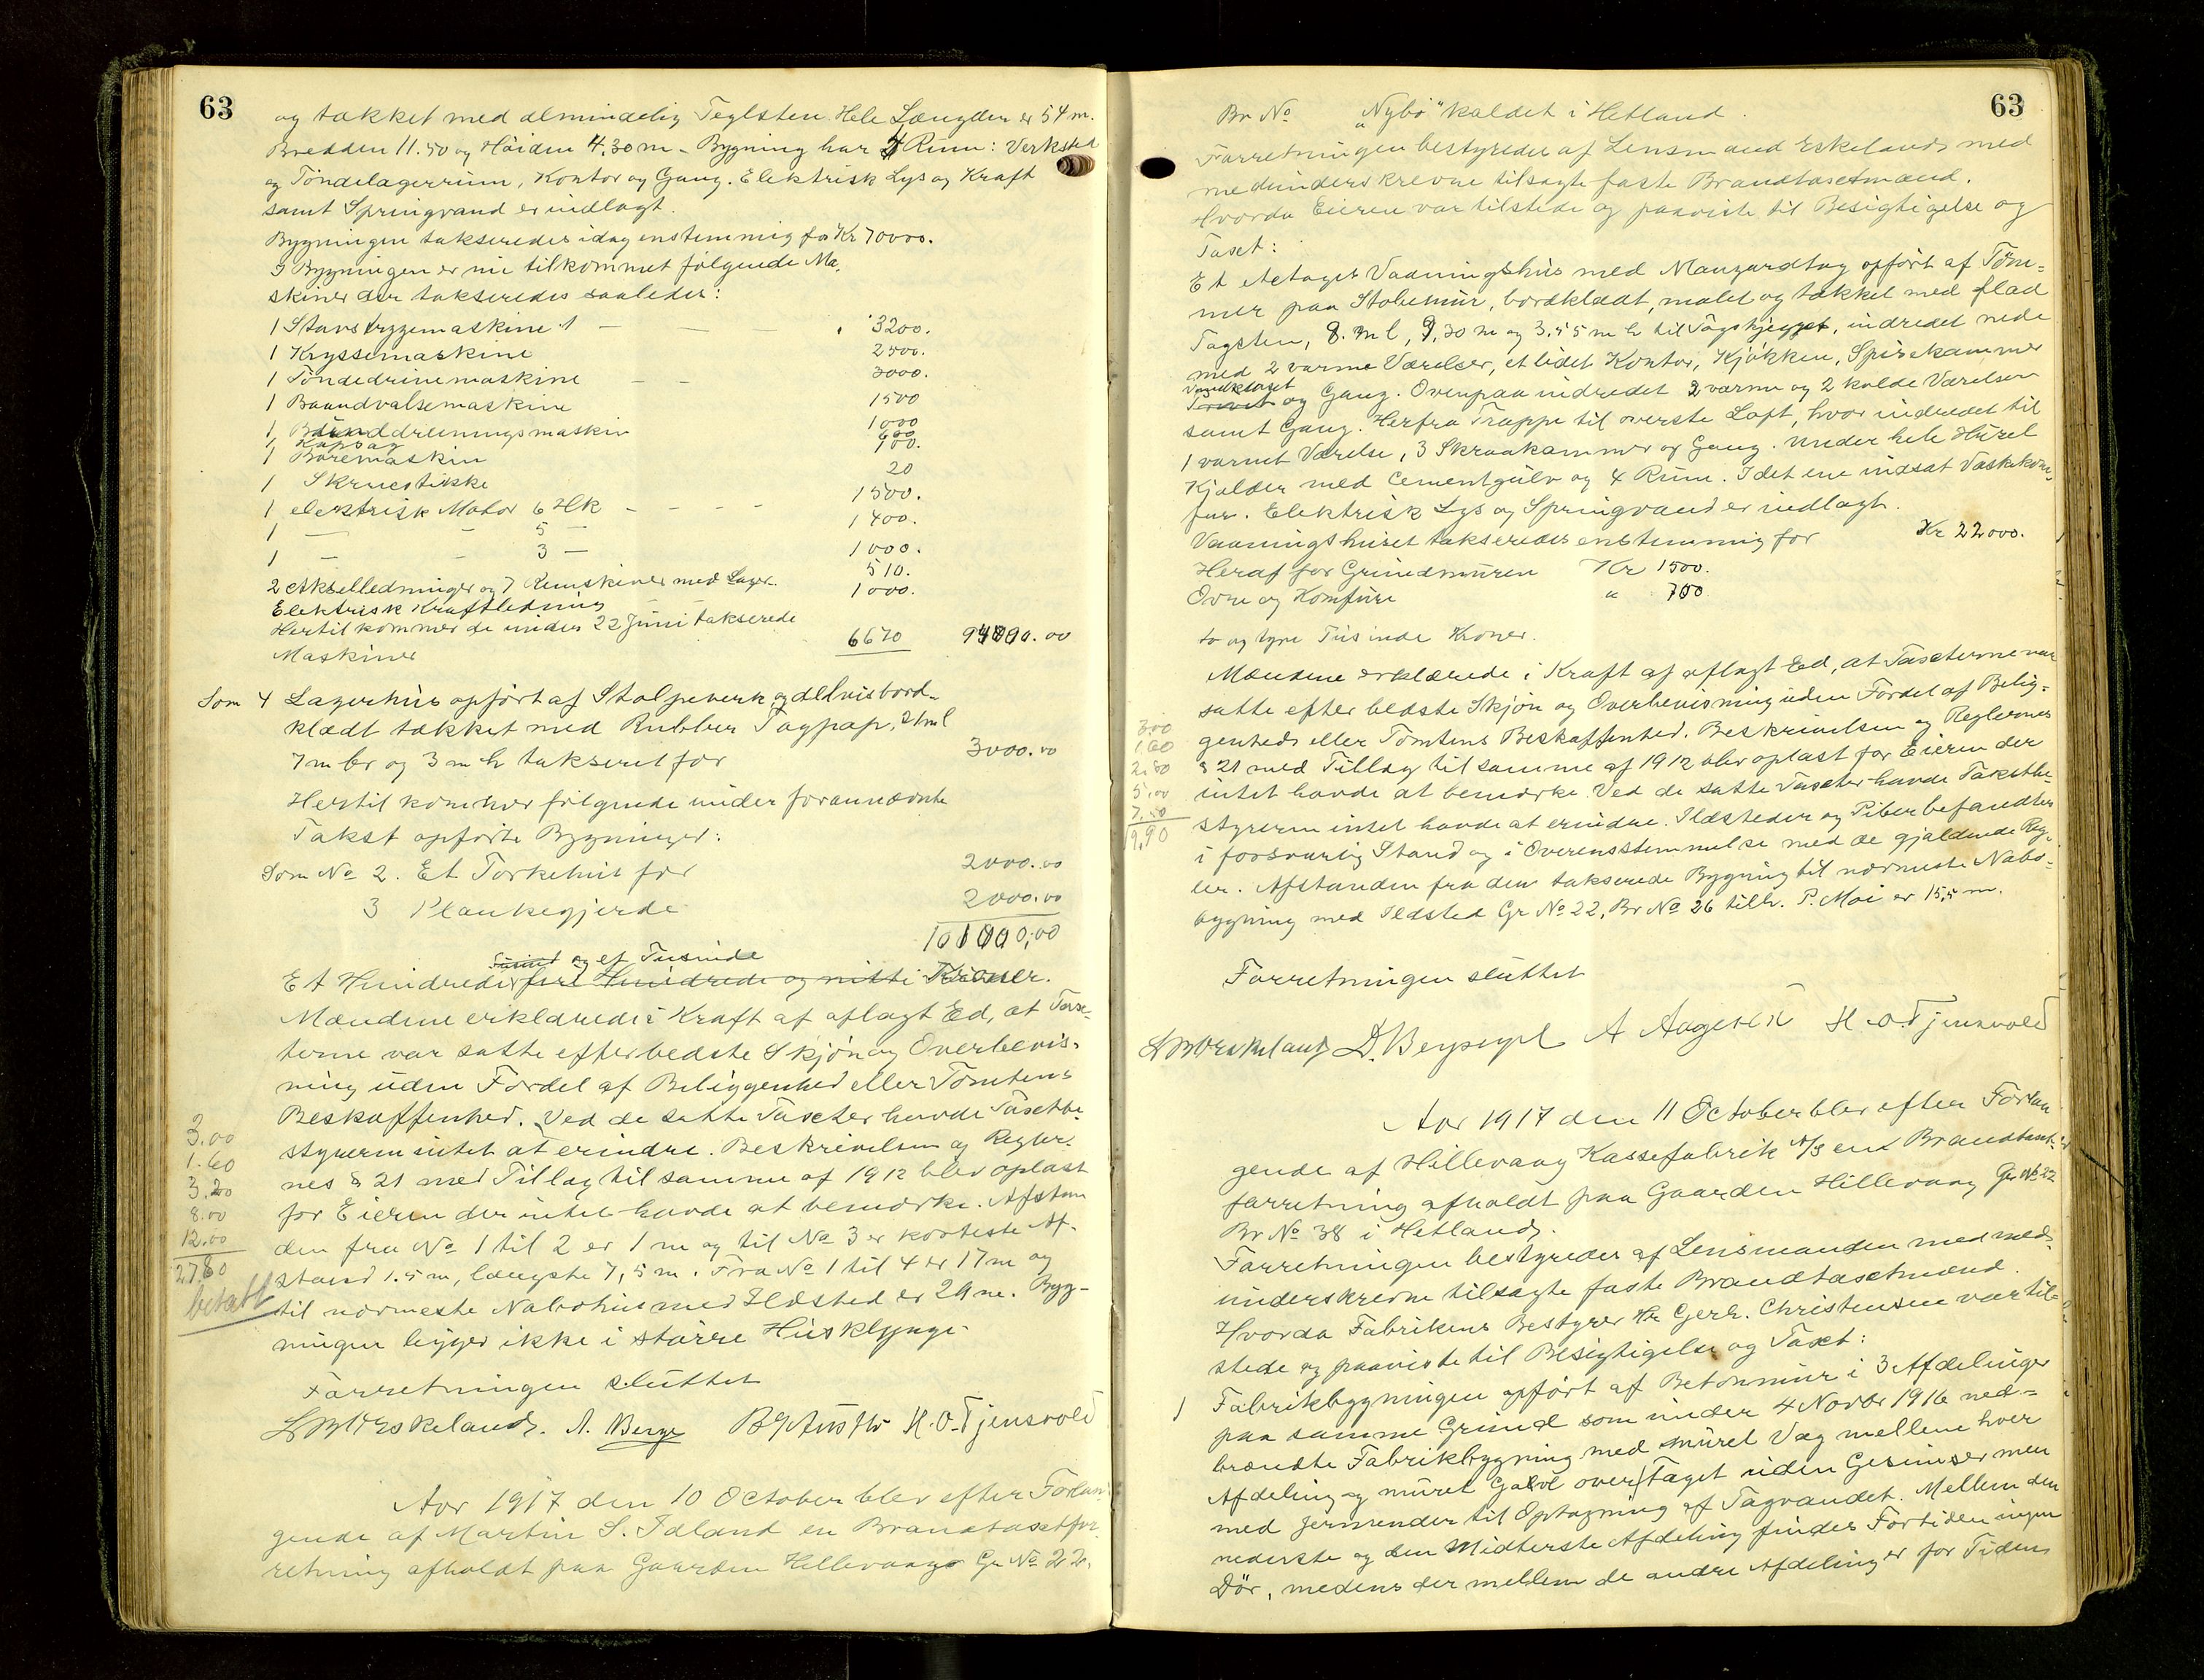 63
og tækket med almindelig Teglsten. Hele Længden er 54 m.
Bredden 11.50 og Höiden 4.30 m - Bygning har 4 Rum: Verksted
og Töndelagerrum, Kontor og Gang. Elektrisk Lys og Kraft
samt Springvand er indlagt.
Bygningen takseredes idag enstemmig for Kr 70000.
I Bygningen er nu tilkommet følgende Ma,
skiner der takseredes saaledes:
1 Stavstryggemaskine 1 - - - 3200.
1 Kryssemaskine 2500.
1 Töndedrivemaskine - - 3000.
1 Baandvalsemaskine 1500
1 Baanddrivningsmaskin 1000
1 Kapsag 600
1 Boremaskin 100.
1 Skruestikke 20
1 elektrisk Motor 6 HK - - - - 1500.
1 — - 5 — 1400.
1 — - 3 — 1000.
2 Akselledninger og 7 Remskiver med Lager. 510.
Elektrisk Kraftledning 1000.
Hertil kommer de under 22 Juni takserede
Maskiner 6670 94000.00
Som 4 Lagerhus opført af Stolpeverk og delvis bord-
klædt tækket med Rubber Tagpap, 21 m l
7 m br og 3 m h takseret for 3000.00
Hertil kommer følgende under forannævnte
Takst opførte Bygninger:
Som No 2. Et Tørkehus for 2000.00
3 Plankegjerde 2000.00
101000,00
Tusind og et Tusinde
Et Hundrede fire Hundrede og nitti Kroner.
Mændene erklærede i Kraft af aflagt Ed, at Taxe-
terne var satte efter bedste Skjøn og Overbevis-
ning uden Fordel af Beliggenhed eller Tomtens
Beskaffenhed. Ved de satte Taxter havde Taxtbe
styreren intet at erindre. Beskrivelsen og Regler-
nes § 21 med Tillæg til samme af 1912 blev oplæst
for Eieren der intet havde at bemærke. Afstan
den fra No 1 til 2 er 1 m og til No 3 er korteste Af-
stand 1.5 m, længste 7,5 m. Fra No 1 til 4 er 17 m og
til nærmeste Nabohus med Ildsted er 29 m. Byg-
ningen ligger ikke i större Husklynge.
3.00
1.60
3.20
8.00
12.00
27.80
betalt
Forretningen sluttet
A. Berge H. O. Tjensvold
Aar 1917 den 10 October blev efter Forlan-
gende af Martin S. Idland en Brandtaxtfor,
retning afholdt paa Gaarden Hillevaag Gr No 22.
63
Br No „Nybö" kaldet i Hetland.
Forretningen bestyredes af Lensmand Eskeland med
medunderskrevne tilsagte faste Brandtaxtmænd.
Hvorda Eieren var tilstede og paaviste til Besigtigelse og
Taxt:
Et etages Vaaningshus med Manzardtag opført af Töm-
mer paa Stobemur, bordklædt, malet og tækket med flad
Tagsten, 8. m l, 9,30 m og 3,55 m h til Tagskjegget, indredet nede
med 2 varme Værelser, et lidet Kontor, Kjökken, Spisekammer
Vandkloset
Privet og Gang. Ovenpaa indredet 2 varme og 2 kolde Værelser
samt Gang. Herfra Trappe til överste Loft, hvor indredet til
1 varmt Værelse, 3 Skraakammer og Gang. Under hele Huset
Kjælder med Cementgulv og 4 Rum. I det ene indsat Vaskekom-
fur. Elektrisk Lys og Springvand er indlagt.
Vaaningshuset takseredes enstemmig for Kr 22000.
Heraf for Grundmuren Kr 1500.
Ovne og Komfure " 700
to og tyve Tusinde Kroner.
Mændene erklærede i Kraft af aflagt Ed, at Taxterne var
satte efter bedste Skjön og Overbevisning uden Fordel af Belig-
genheds eller Tomtens Beskaffenhed. Beskrivelsen og Reglernes
§ 21 med Tillæg til samme af 1912 blev oplæst for Eieren der
intet havde at bemærke. Ved de satte Taxter havde Takstbe-
styreren intet havde at erindre. Ildsteder og Piber befandtes
i forsvarlig Stand og i Overensstemmelse med de gjældende Reg-
ler. Afstanden fra den takserede Bygning til nærmeste Nabo-
bygning med Ildsted Gr No 22, Br No 26 tilh. P. Moi er 15,5 m.
3.00
1.60
2.80
5.00
7.50
19.90
Forretningen sluttet
H. O. Tjensvold
Aar 1917 den 11 October blev efter Forlan
gende af Hillevaag Kassefabrik A/S en Brandtaxt-
forretning afholdt paa Gaarden Hillevaag Gr No 22
Br No 38 i Hetland.
Forretningen bestyredes af Lensmanden med med-
underskrevne tilsagte faste Brandtaxtmænd.
Hvorda Fabrikens Bestyrer Hr Gerh. Christensen var til-
stede og paaviste til Besigtigelse og Taxt:
1 Fabrikbygningen opført af Betonmur i 3 Afdelinger
paa samme Grund som under 4 Novbr 1916 ned-
brændte Fabrikbygning med muret Væg mellem hver
Afdeling og muret Gavl over Taget uden Gesimser men
med Jernrender til Optagning af Tagvandet. Mellem den
nederste og den Midterste Afdeling findes Fortiden ingen
Dör, medens der mellem de andre Afdelinger for Tiden